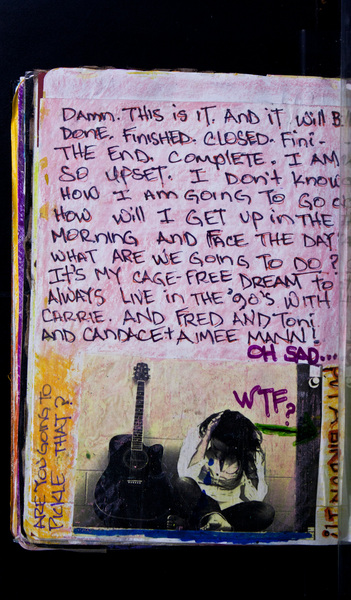 Damn. This is it. And it will B
Done. Finished. Closed. Fini-
The End. Complete. I am
so upset. I don't know
how I am going to go o
How will I get up in the
morning and face the day
what are we going to do?
It's my cage-free dream to
always live in the '90's with
Carrie. And Fred and Toni
and Candace + Aimee Mann!
Oh sad...
WTF?
Are you going to
pickle that?
Put a bird on it!